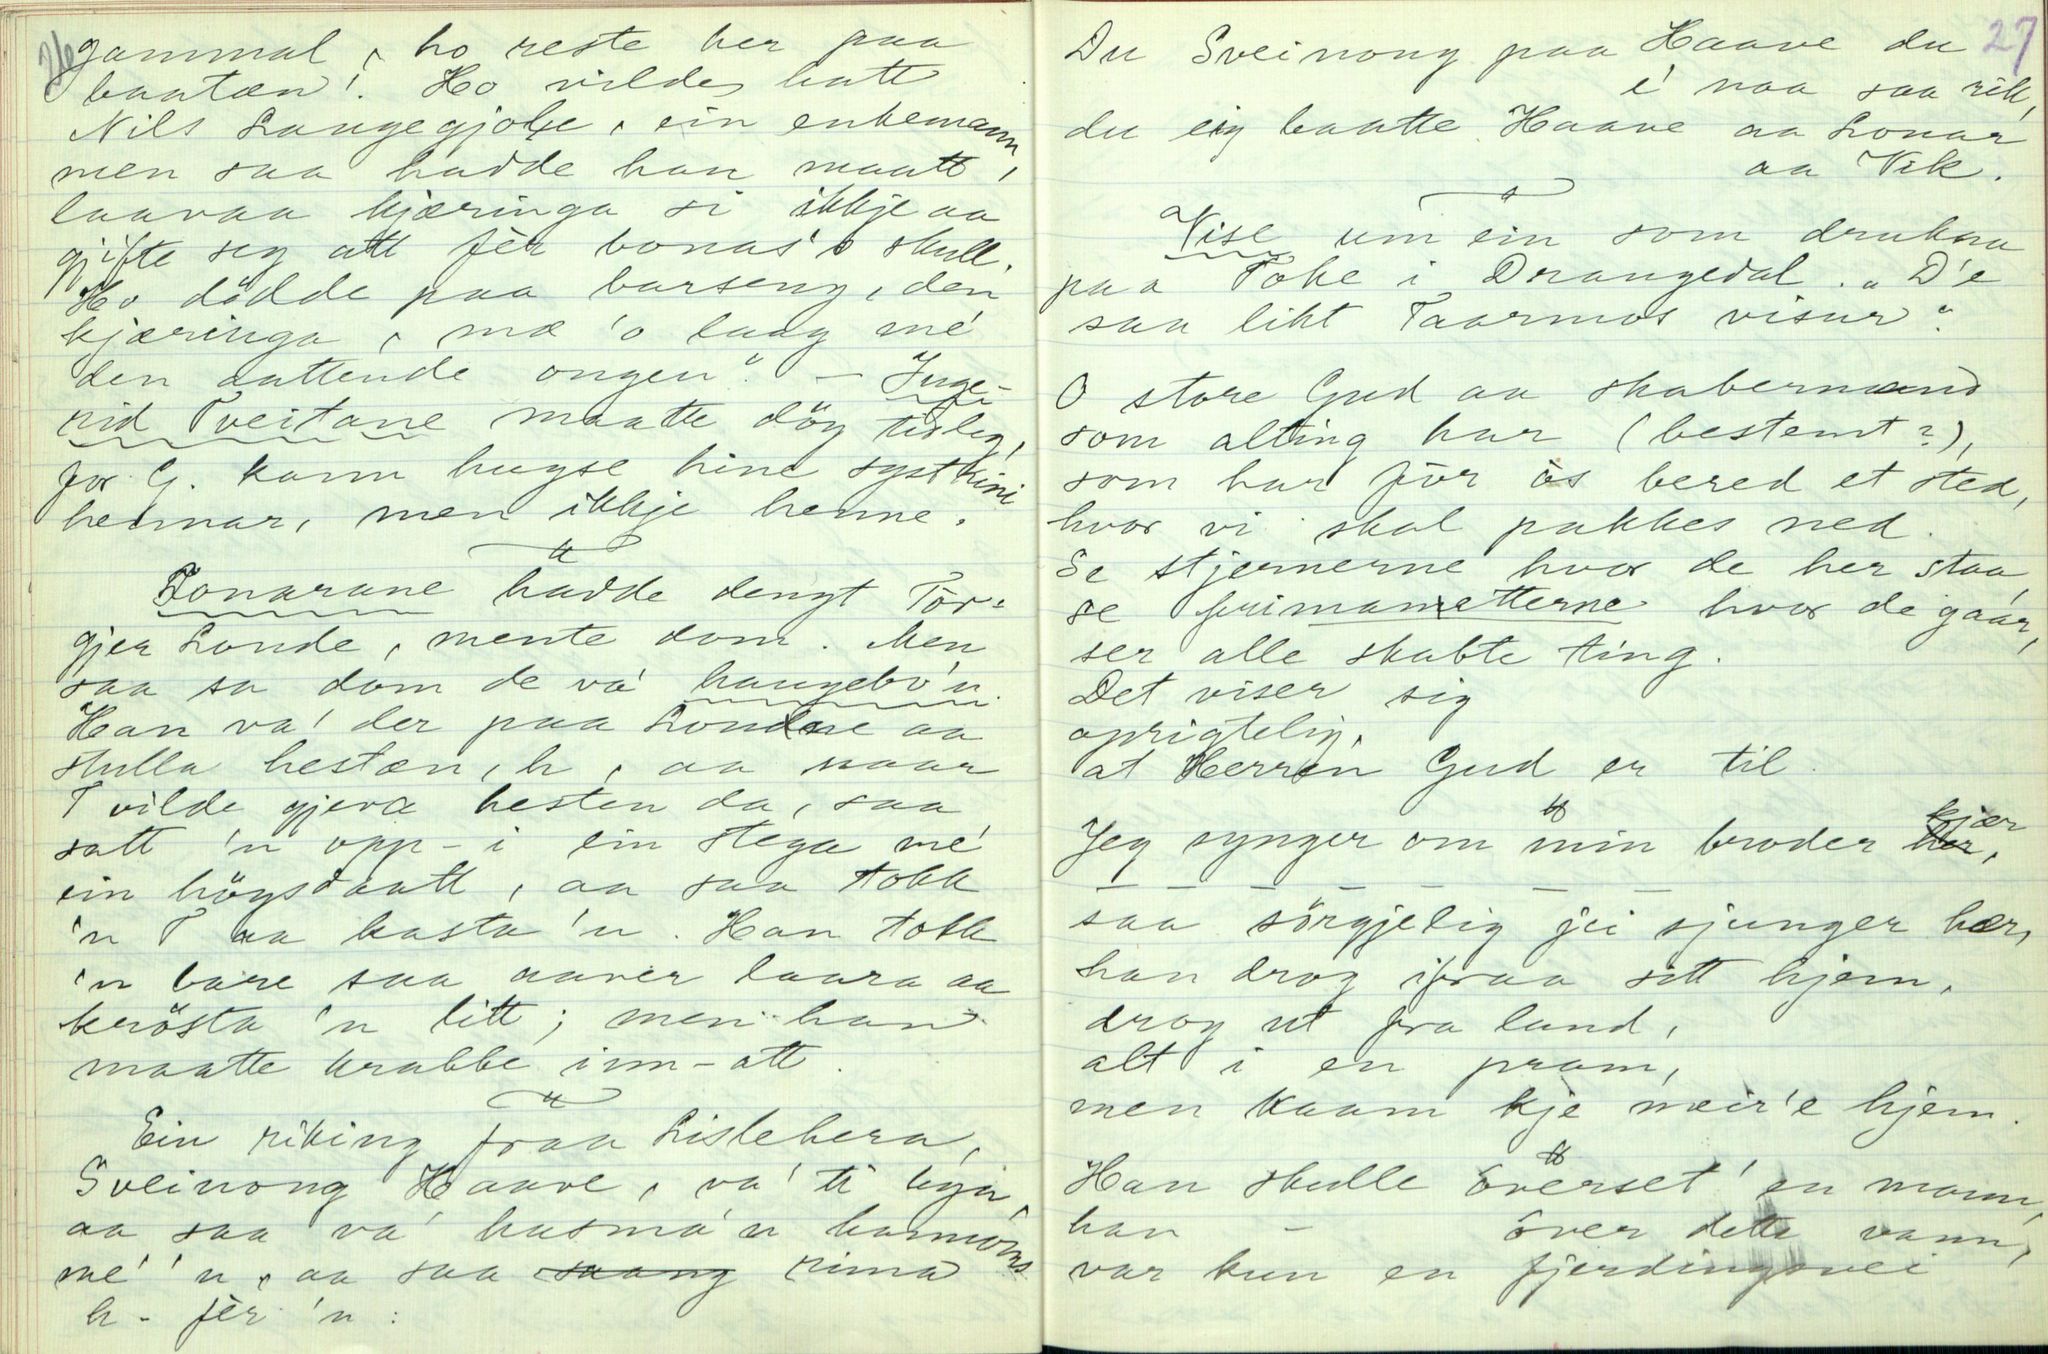 26
gammal, ho reste her paa
baatæn! Ho vildes hatt
Nils LaugegjoRe, ein enkemann,
men saa hadde han maatt,
laavaa kjæringa si ikkje aa
gjifte seg att fèr bonas's skull.
Ho dödde paa barseng, den
kjæringa, mæ 'o laag me'
den aattende ongen". — Inge-
rid Tveitane maatte döy tisleg,
for G. kann hugse hine systkini
hennar, men ikkje henne.
Lonarane hadde dengt Tòr-
gjer Londe, mente dom. Men
saa sa dom de va' haugebo'n.
Han va' der paa Londane aa
stulla hestæn, h, aa naar
T vilde gjeva hesten da, saa
satt 'n opp-i ein stega me'
ein höysdaatt, aa saa tokk
'n T aa kasta 'n. Han tokk
'n bare saa aaver laara aa
krösta 'n litt; men han
maatte krabbe inn-att.
Ein riking fraa Lislehera,
Sveinong Haave, va' ti byn,
aa saa va' husma'n hannòms
me' 'n, aa saa saang rima
h - fèr 'n :
27
Du Sveinong paa Haave du
e' naa saa rik,
du eig baatte Haave aa Lonar
aa Vik.
Vise um ein som drukna
paa Toke i Drangedal. „D'e
saa likt Taarmos visur".
O store Gud aa skabermand
som alting har (bestemt?),
som har för òs bered et sted,
hvor vi skal pakkes ned.
Se stjernerne hvor de her staa,
se frimanetterne hvor de gaar,
ser alle skabte ting.
Det viser sig
oprigtelig,
at Herren Gud er til.
Jeg synger om min broder her, kjær
— — — — — — —
saa sörgjelig jei sjunger hær,
han drog ifraa sitt hjem,
drog ut fra land,
alt i en pram,
men kaam kje meir'e hjem.
Han skulle överset' en mann,
han — över dette vann,
var kun en fjerdingsvei